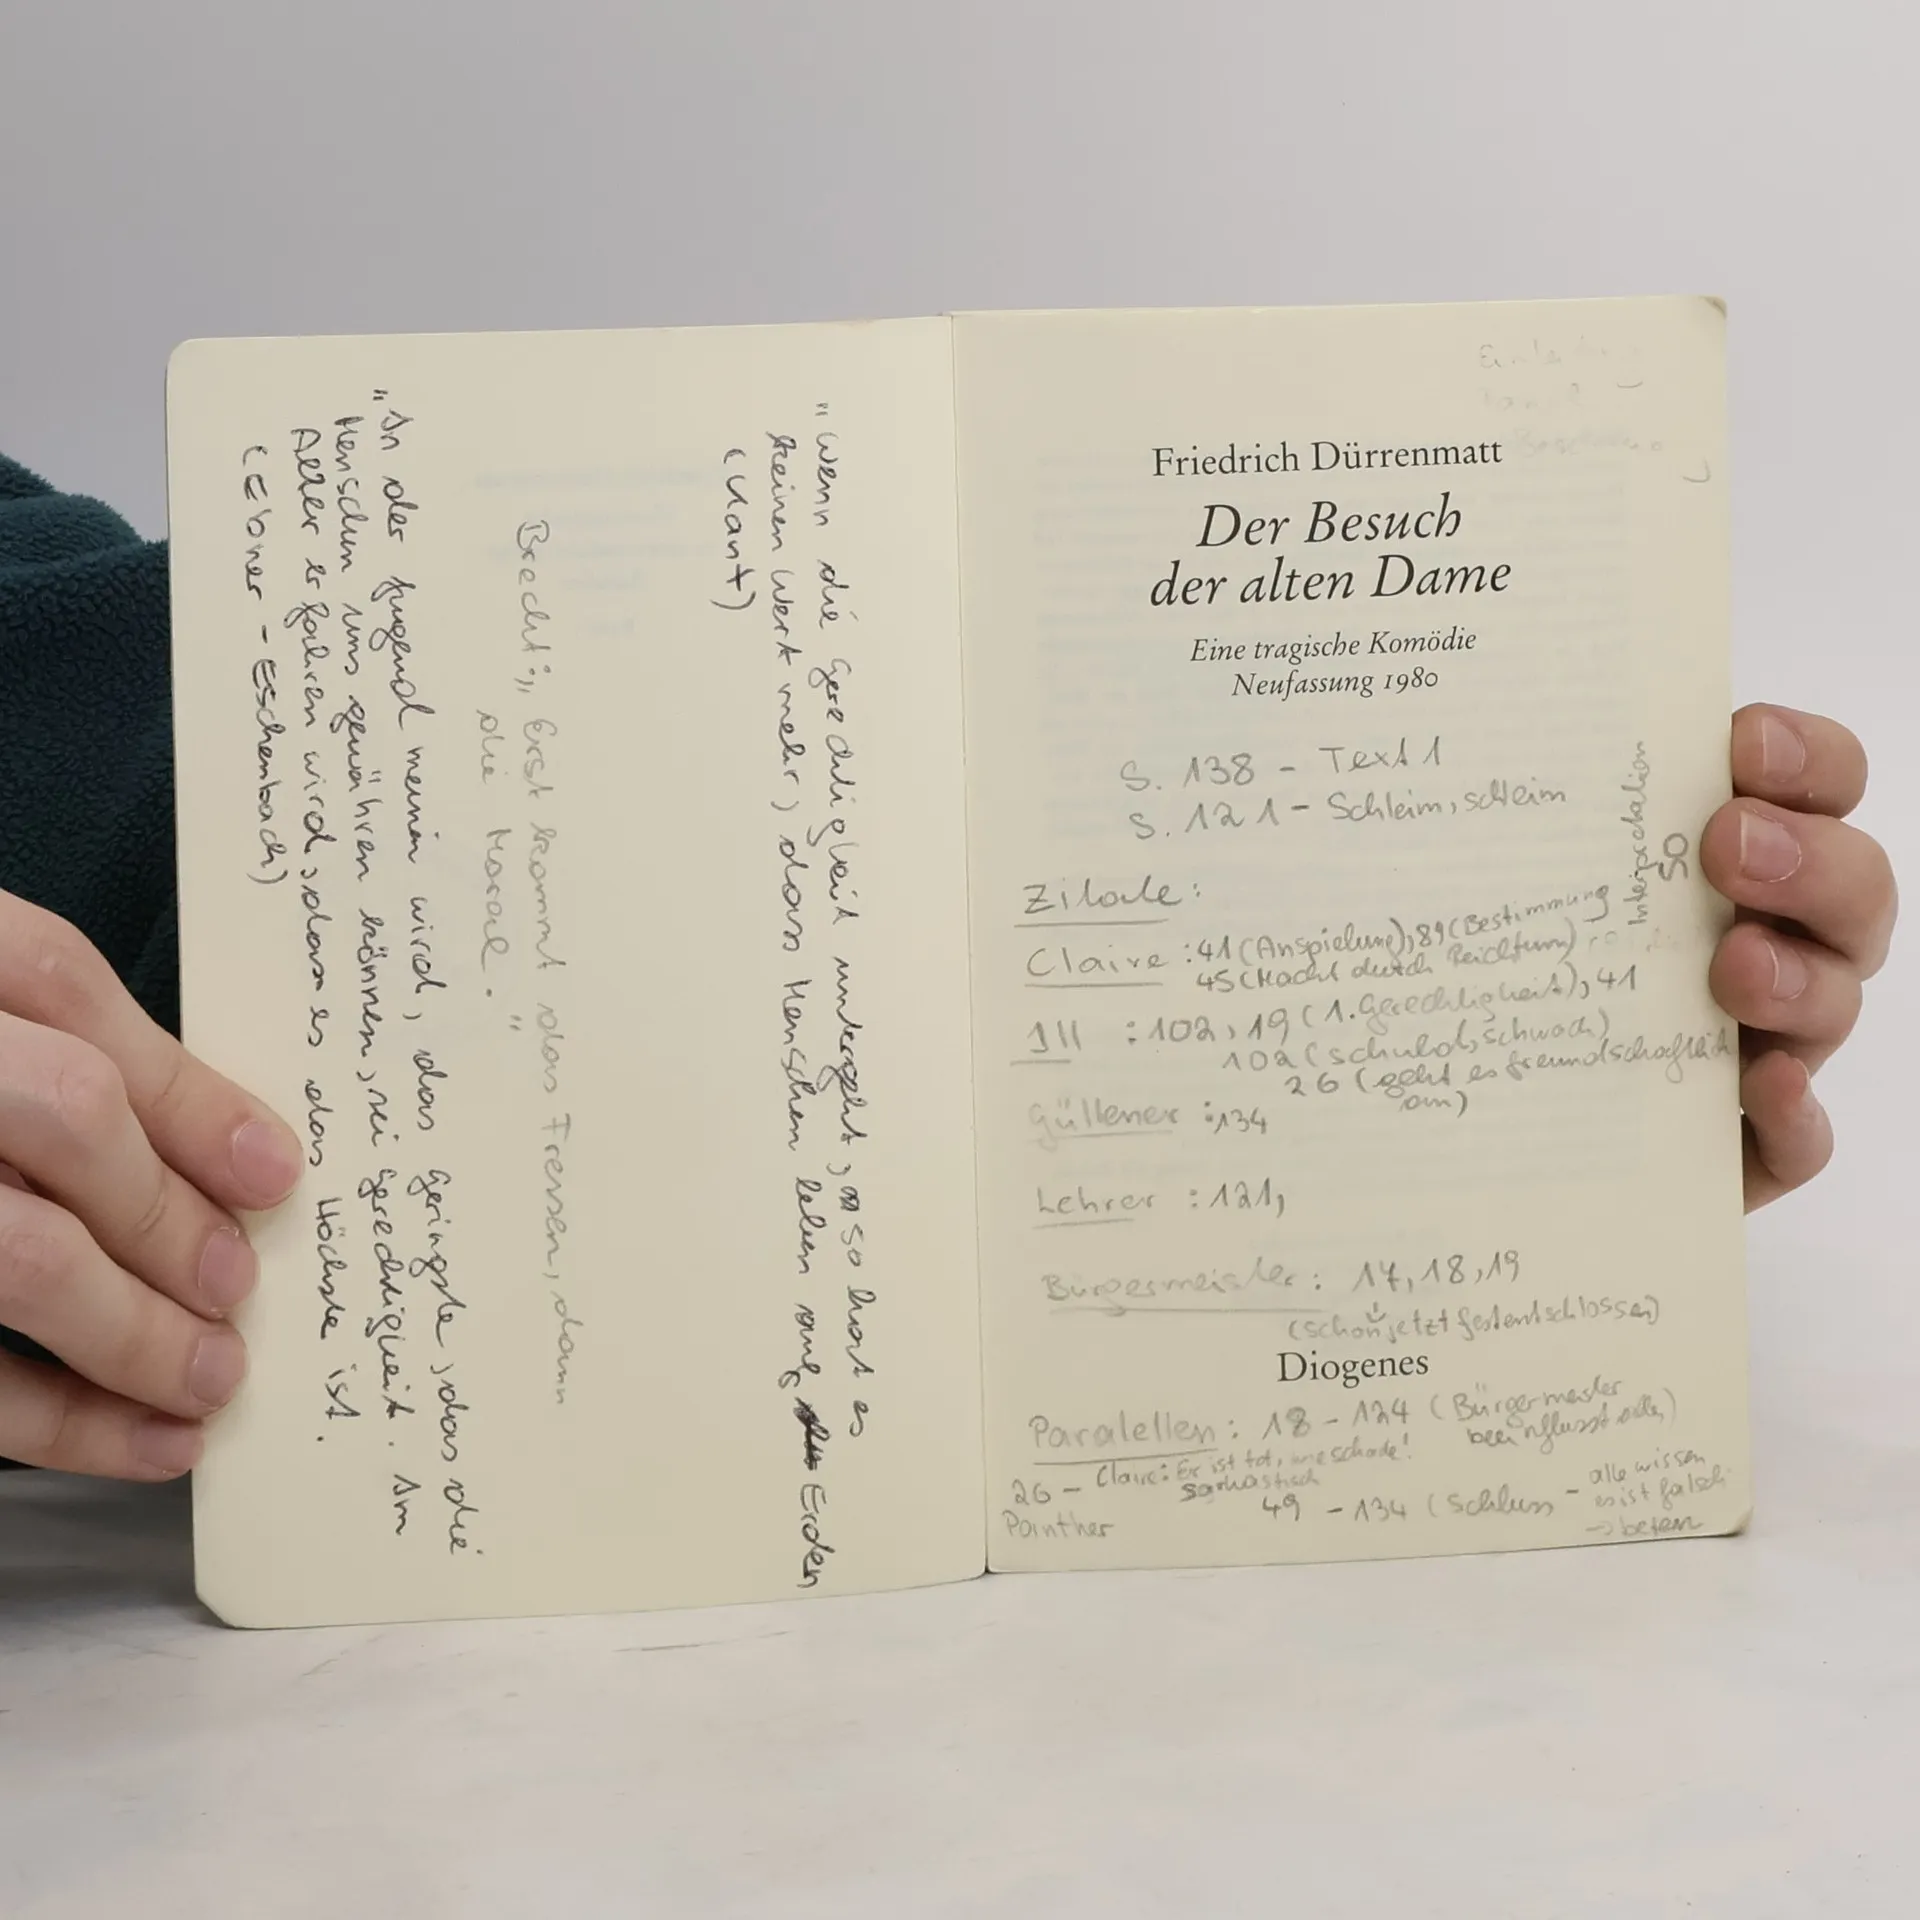 "Wenn die Gerechtigkeit untergeht, so hat es
keinen Wert mehr, dass Menschen leben auf Erden
(Kant)
Brecht: "Erst kommt das Fressen, dann
die Moral."
"In der Jugend meinen wird, das Geringste, das die
Menschen uns gewähren können, sei Gerechtigkeit. Im
Alter erfahren wird, dass es das Höchste ist.
(Ebner-Eschenbach)
Friedrich Dürrenmatt
Der Besuch
der alten Dame
Eine tragische Komödie
Neufassung 1980
S. 138 - Text 1
S. 121 - Schleim, schleim
Interpretation
50
Zitate:
Claire : 41 (Anspielung), 89 (Bestimmung
45 (Macht durch Reichtum)
Ill : 102, 19 (1. Gerechtigkeit), 41
102 (schuld, schwach)
26 (geht es freundschaftlich
an)
Güllener : 134
Lehrer : 121,
Bürgermeister : 17, 18, 19
(schon jetzt festentschlossen)
Diogenes
Paralellen : 18 - 124 (Bürgermeister
beeinflusst)
26 - Claire: Er ist tot, wie schade!
sarkastisch
Panther
49 - 134 (Schluss - alle wissen
es ist falsch
-> beten